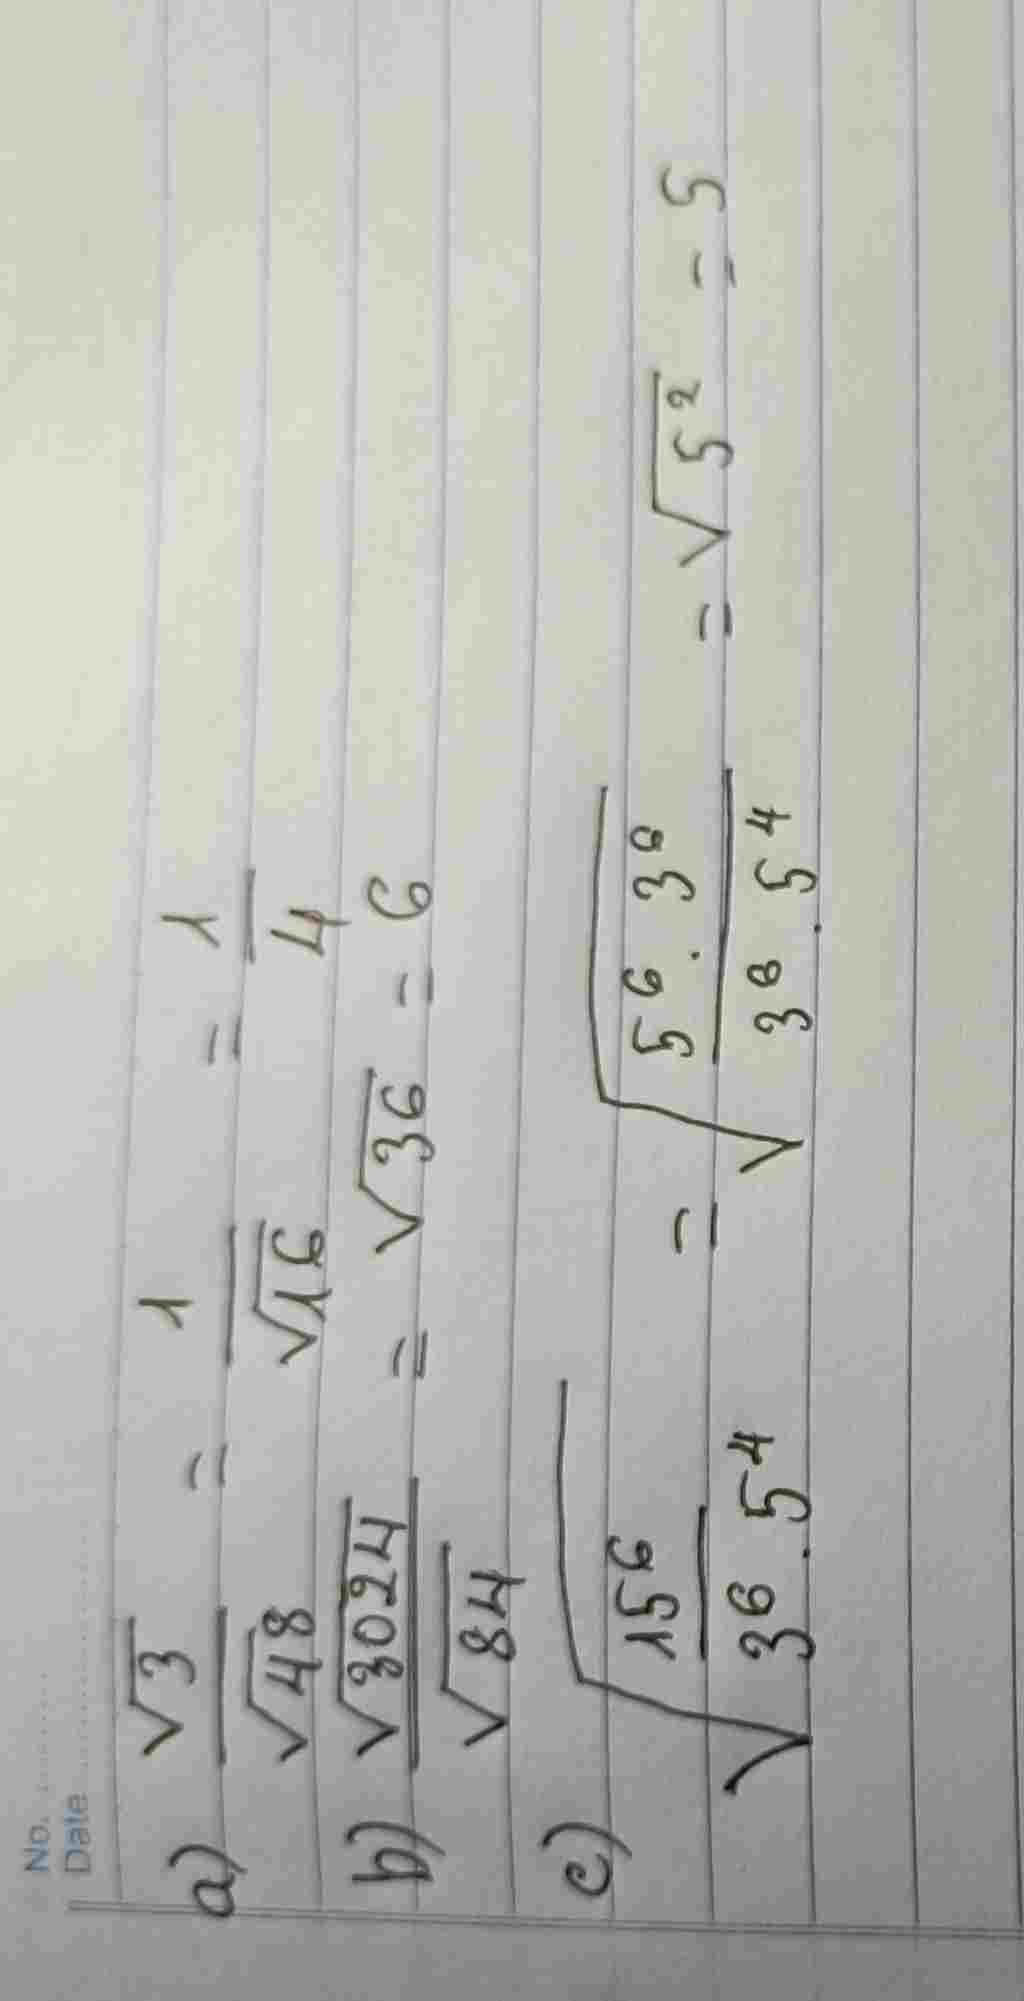 No. ............
Date ........................
a) √3/√48 = 1/√16 = 1/4
b) √3024/√84 = √36 = 6
c) √(15⁶/(3⁶ . 5⁴)) = √((5⁶ . 3⁶)/(3⁶ . 5⁴)) = √(5²) = 5